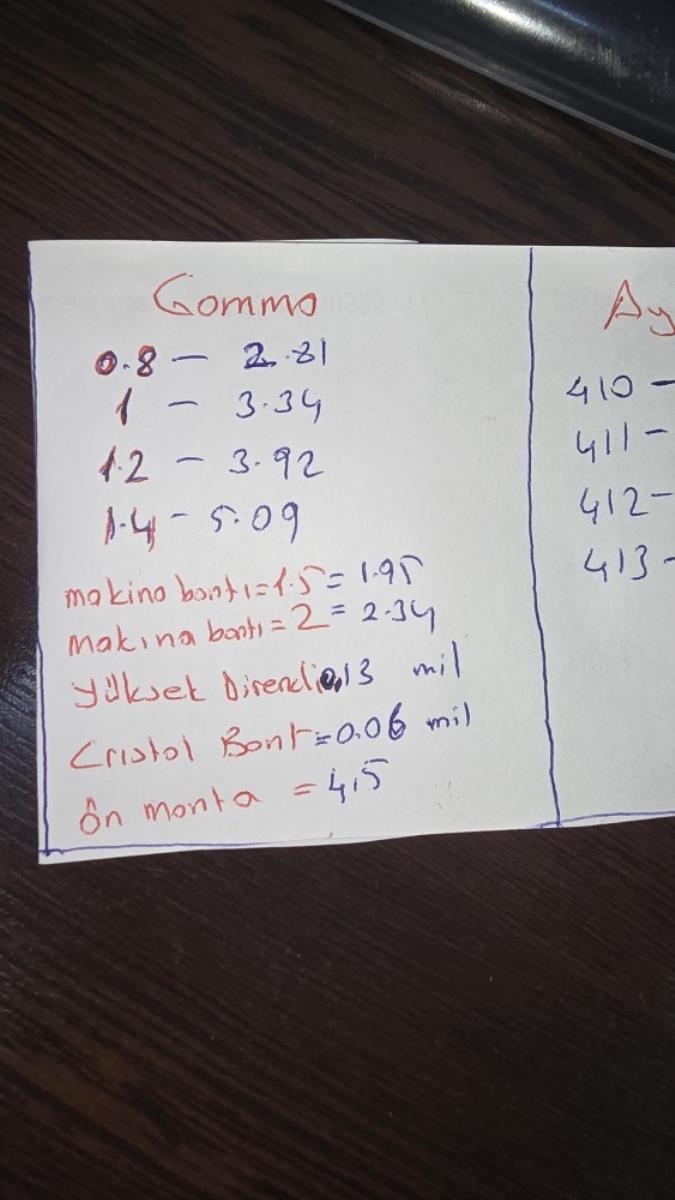 Gamma
0.8 - 2.81
1 - 3.34
1.2 - 3.92
1.4 - 5.09
makina bantı = 1.5 = 1.95
makına bantı = 2 = 2.34
Yüksek Dirençli 0,13 mil
Cristal Bant = 0.06 mil
Ön monta = 4,5
Ay
410 -
411 -
412 -
413 -